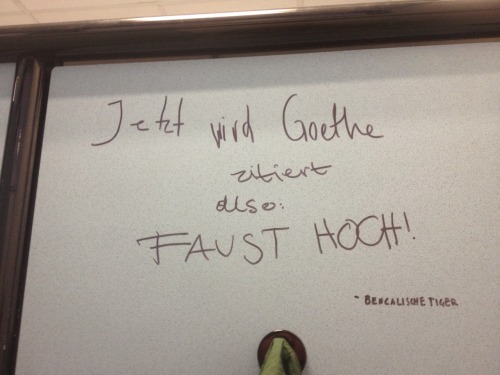 Jetzt wird Goethe
zitiert
also:
FAUST HOCH!
- BENGALISCHE TIGER